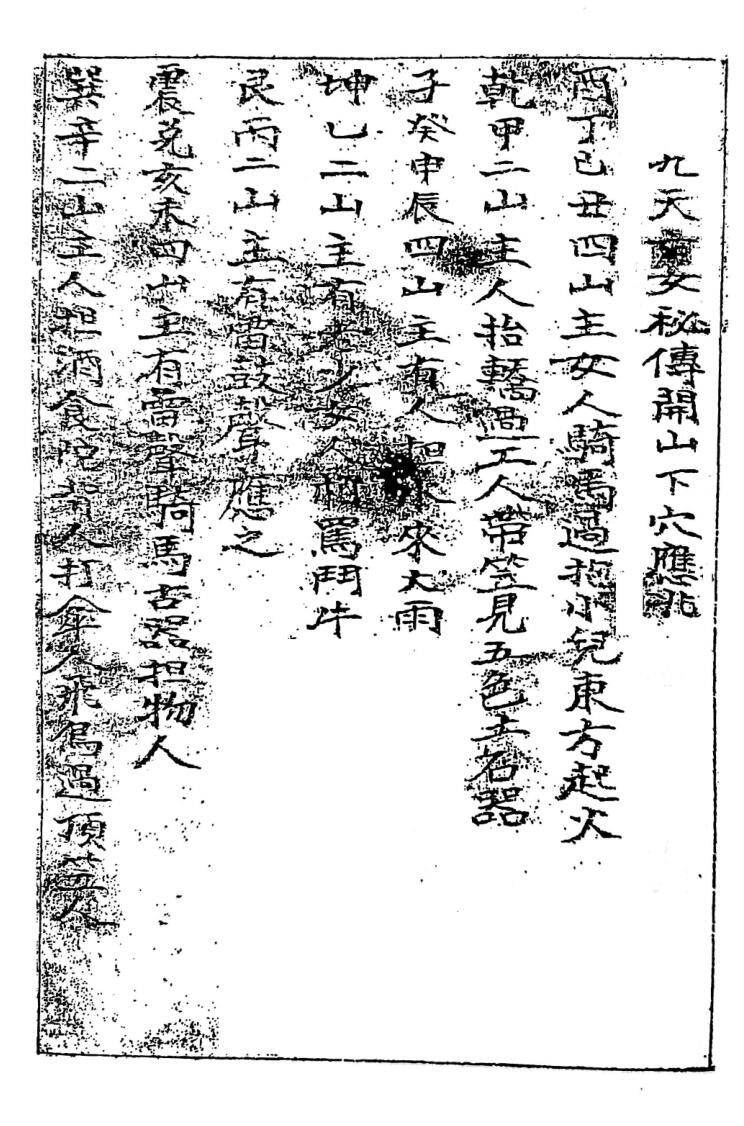 九天玄女秘傳開山下穴應兆
酉丁巳丑四山主女人騎馬過抱小兒東方起火
乾甲二山主人抬轎過工人帶笠見五色土石器
子癸申辰四山主有人担水來大雨
坤乙二山主有老少女人相罵鬥牛
艮丙二山主有雷鼓聲應之
震兑亥未四山主有雷聲騎馬古器担物人
巽辛二山主人担酒食陀背人打傘人飛鳥過頂人